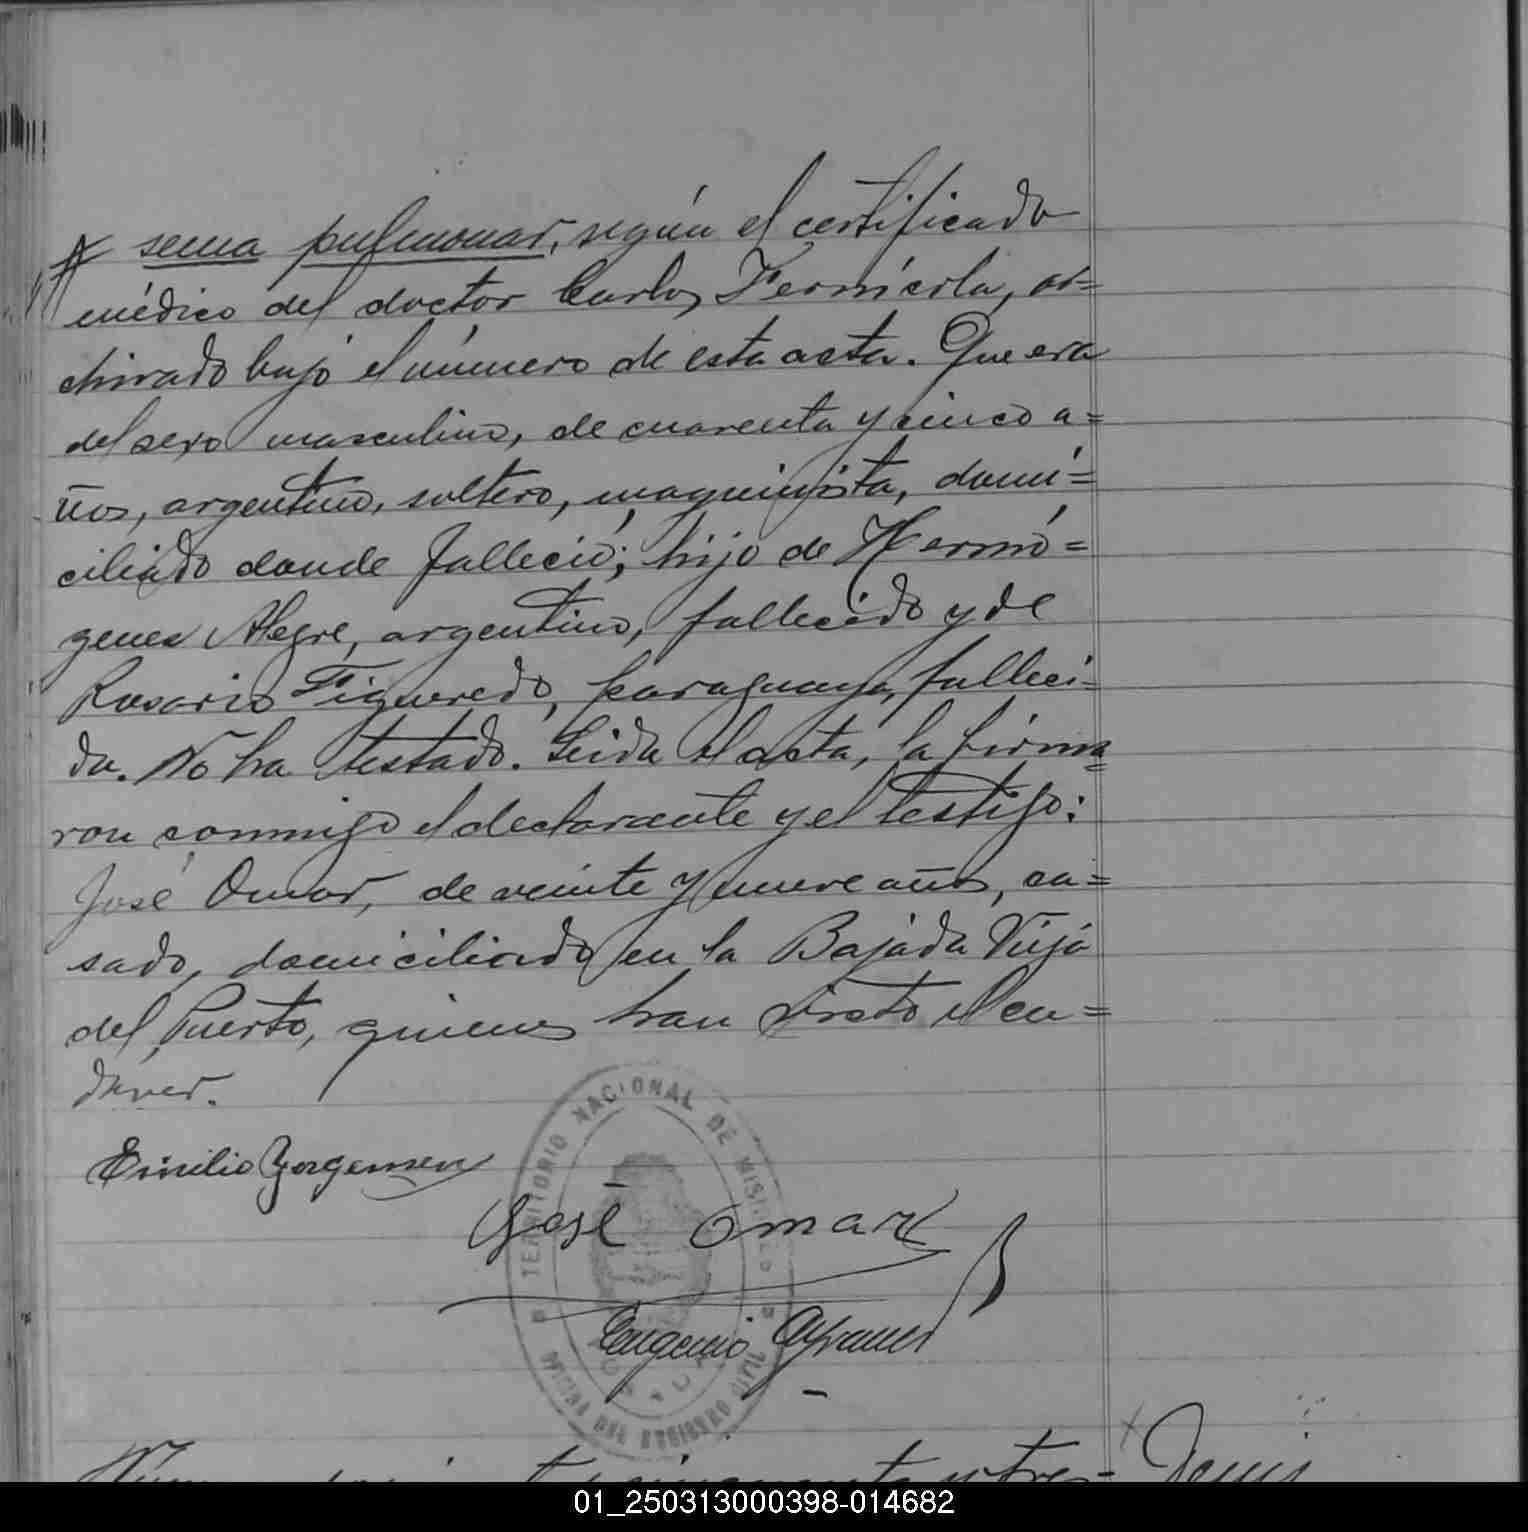 sema pulmonar, según el certificado
médico del doctor Carlos Fernícola, ar=
chivado bajo el número de esta acta. Que era
del sexo masculino, de cuarenta y cinco a=
ños, argentino, soltero, maquinista, domi=
ciliado donde falleció; hijo de Hermó=
genes Alegre, argentino, fallecido y de
Rosario Figueredo, paraguaya, falleci=
da. No ha testado. Leida el acta, la firma=
ron conmigo el declarante y el testigo:
José Omar, de veinte y nueve años, ca=
sado, domiciliado en la Bajada Vieja
del Puerto, quienes han visto el ca=
daver.
Emilio Jorgensen
José Omar
Eugenio
TERRITORIO NACIONAL DE MISIONES
OFICINA DEL REGISTRO CIVIL
POSADAS
cincuenta y tres=
01_250313000398-014682